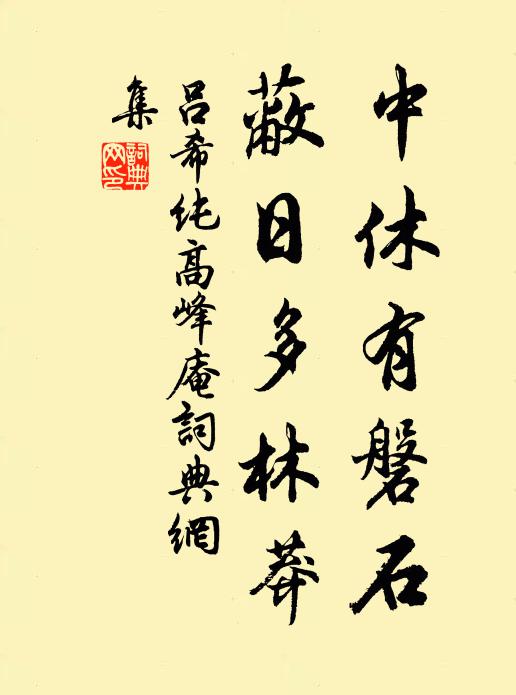 中休有磐石
蔽日多林莽
呂希純高峰庵詞典網
集
詞典網印